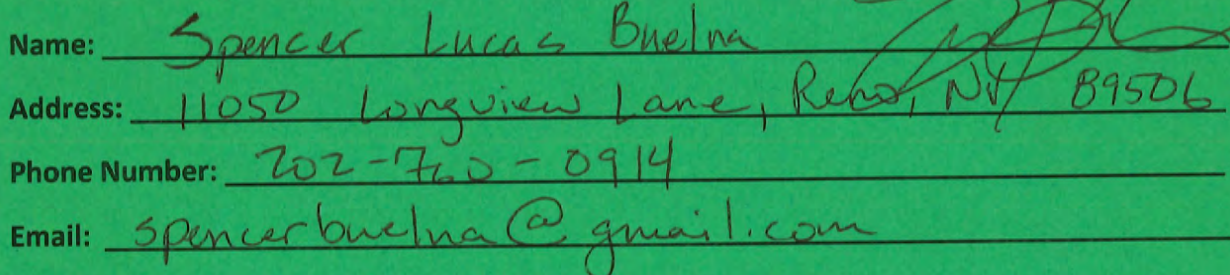 Name: Spencer Lucas Buelna
Address: 11050 Longview Lane, Reno, NV 89506
Phone Number: 202-760-0914
Email: spencerbuelna@gmail.com